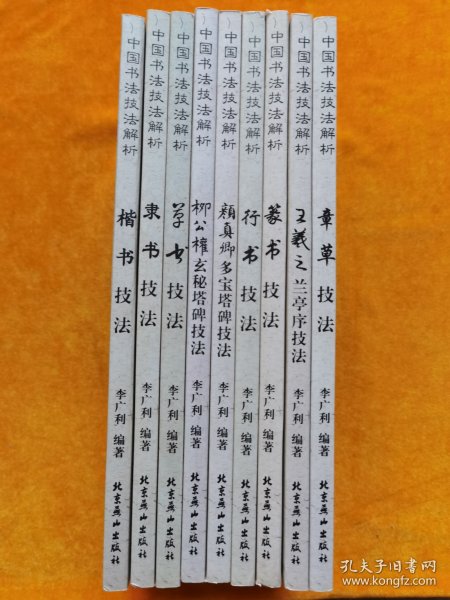 中国书法技法解析 楷书技法 李广利 编著 北京燕山出版社
中国书法技法解析 隶书技法 李广利 编著 北京燕山出版社
中国书法技法解析 草书技法 李广利 编著 北京燕山出版社
中国书法技法解析 柳公権玄秘塔碑技法 李广利 编著 北京燕山出版社
中国书法技法解析 颜真卿多宝塔碑技法 李广利 编著 北京燕山出版社
中国书法技法解析 行书技法 李广利 编著 北京燕山出版社
中国书法技法解析 篆书技法 李广利 编著 北京燕山出版社
中国书法技法解析 王羲之兰亭序技法 李广利 编著 北京燕山出版社
中国书法技法解析 章草技法 李广利 编著 北京燕山出版社
孔夫子旧书网
www.kongfz.com